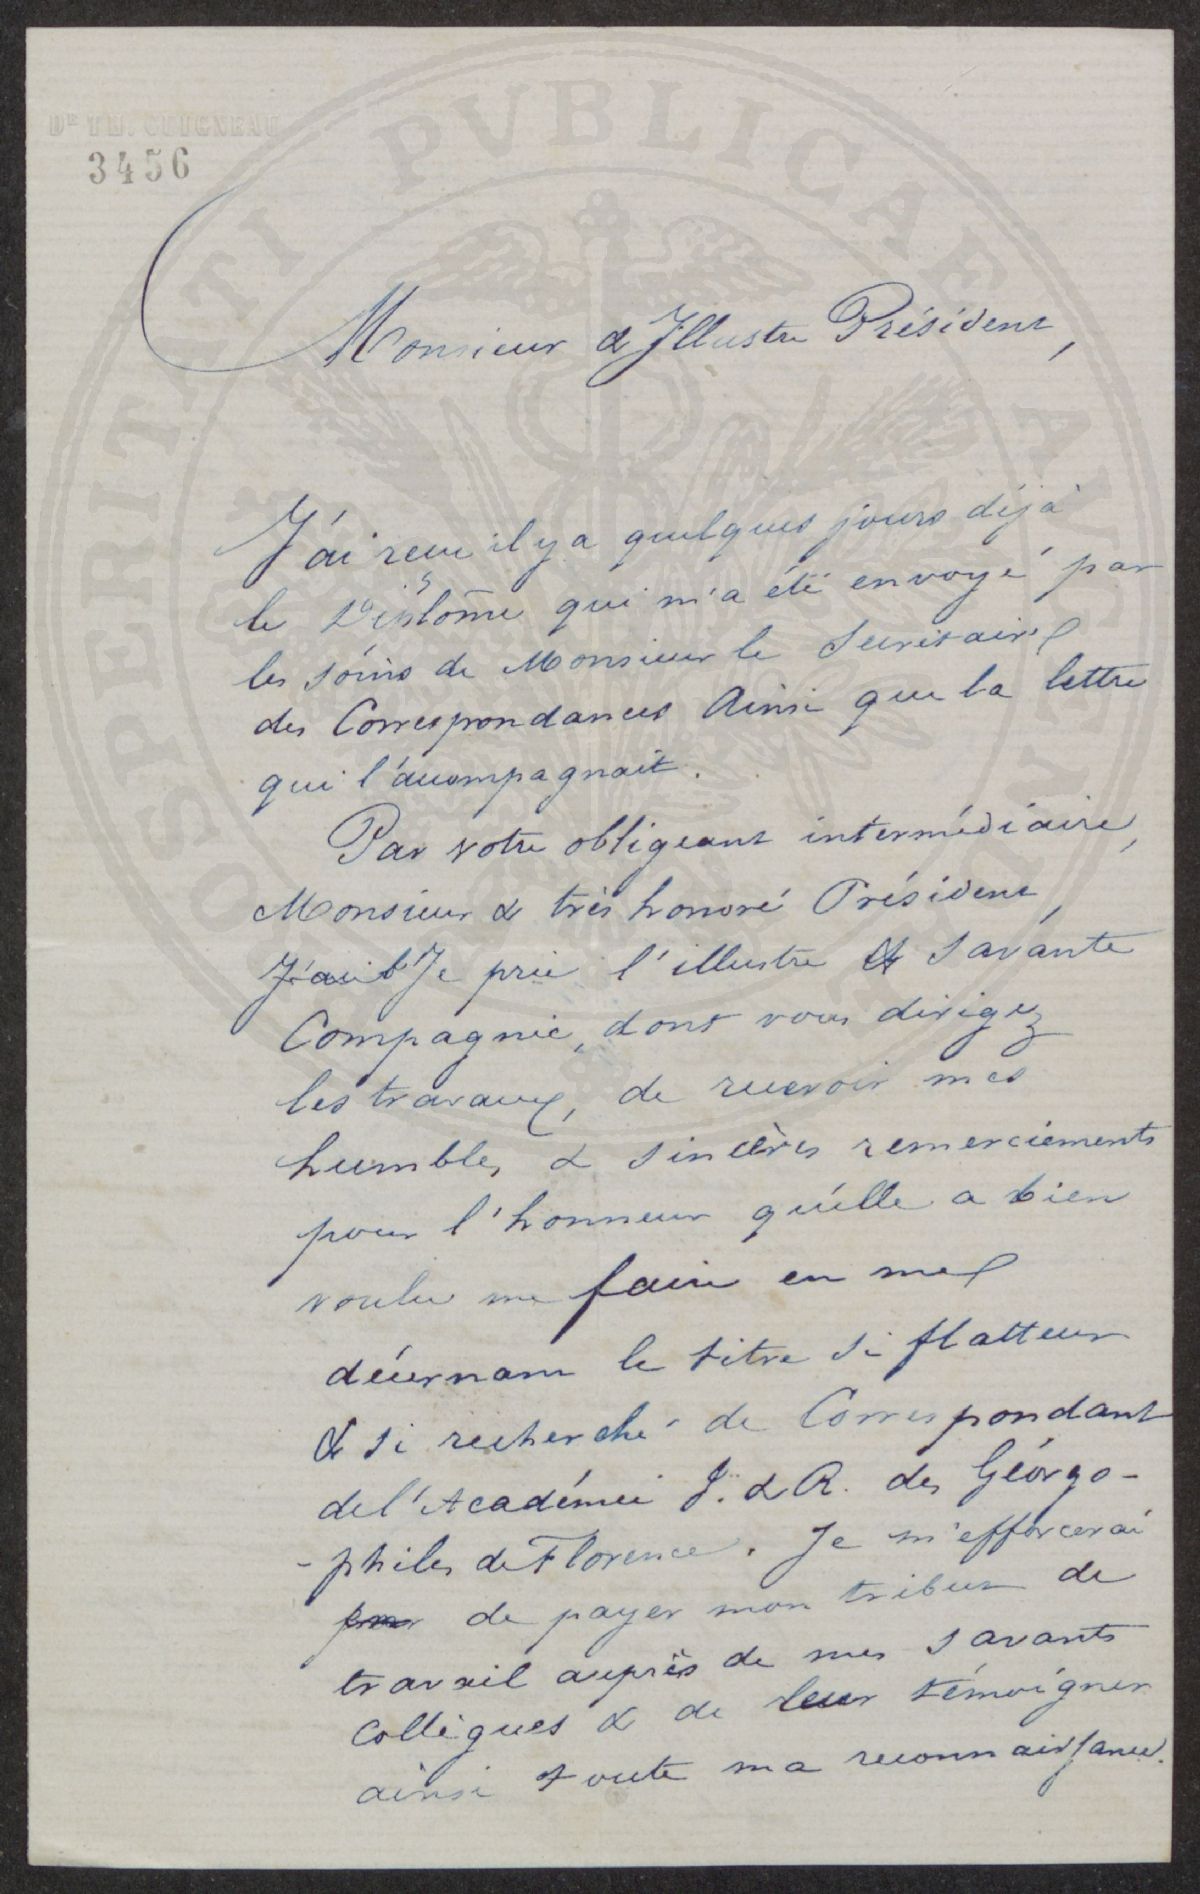 Dr TH. CUIGNEAU
3456
PROSPERITATI PUBLICAE AUGENDAE
Monsieur & Illustre Président,
J'ai reçu il y a quelques jours déjà
le Diplôme qui m'a été envoyé par
les soins de Monsieur le Secrétaire
des Correspondances Ainsi que la lettre
qui l'accompagnait.
Par votre obligeant intermédiaire,
Monsieur & très honoré Président,
Je prie l'illustre & savante
Compagnie, dont vous dirigez
les travaux, de recevoir mes
humbles & sincères remerciements
pour l'honneur qu'elle a bien
voulu me faire en me
décernant le titre si flatteur
& si recherché de Correspondant
de l'Académie J. & R. des Géorgo-
-philes de Florence. Je m'efforcerai
de payer mon tribut de
travail auprès de mes savants
collègues & de leur témoigner
ainsi toute ma reconnaissance.